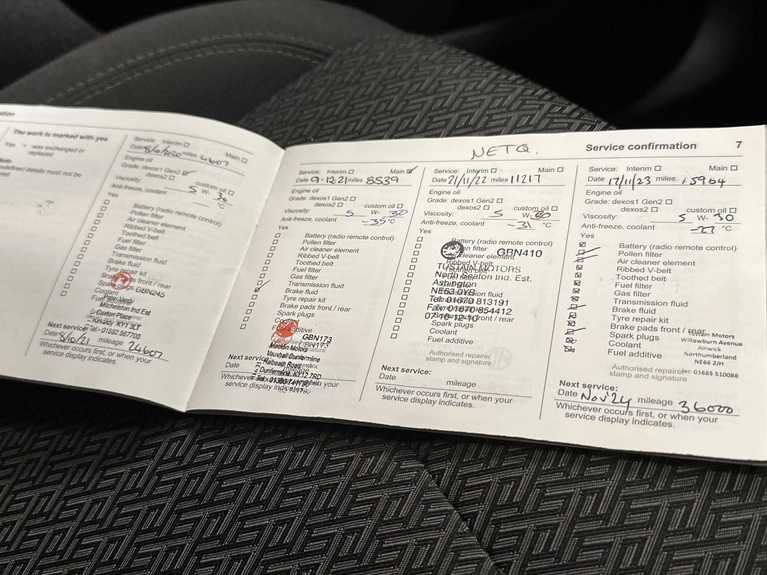 The work is marked with you
Yes = was exchanged or
replaced
Service: Interim ☐ Main ☐
Date 8/10/2020 miles 4607
Engine oil
Grade: dexos1 Gen2
dexos2 ☐ custom oil ☐
Viscosity: 5 W- 30
Anti-freeze, coolant °C
Yes
Battery (radio remote control)
Pollen filter
Air cleaner element
Ribbed V-belt
Toothed belt
Fuel filter
Gas filter
Transmission fluid
Brake fluid
Tyre repair kit
GBN245
Next service:
Date 8/10/21 mileage 24607
Whichever occurs first, or when your
service display indicates.
Service: Interim ☐ Main ☑
Date 9-12-21 miles 8539
Engine oil
Grade: dexos1 Gen2 ☐
dexos2 ☐ custom oil ☐
Viscosity: 5 W- 30
Anti-freeze, coolant -35 °C
Yes
Battery (radio remote control)
Pollen filter
Air cleaner element
Ribbed V-belt
Toothed belt
Fuel filter
Gas filter
Transmission fluid
Brake fluid
Tyre repair kit
Brake pads front / rear
Spark plugs
GBN173
Next service:
Date
Whichever occurs first, or when your
service display indicates.
NETQ.
Service: Interim ☐ Main ☐
Date 21/11/22 miles 11217
Engine oil
Grade: dexos1 Gen2 ☐
dexos2 ☐ custom oil ☐
Viscosity: 5 W-
Anti-freeze, coolant -31 °C
Yes
Battery (radio remote control)
GBN410
MOTORS
North Seaton Ind. Est.
Ashington
NE63 0YB
Tel: 01670 813191
Fax: 01670 854412
Spark plugs
Coolant
Fuel additive
Authorised repairer
stamp and signature
Next service:
Date mileage
Whichever occurs first, or when your
service display indicates.
Service confirmation 7
Service: Interim ☐ Main ☐
Date 17/11/23 miles 15904
Engine oil
Grade: dexos1 Gen2 ☐
dexos2 ☐ custom oil ☐
Viscosity: 5 W- 30
Anti-freeze, coolant -27 °C
Yes
Battery (radio remote control)
Pollen filter
Air cleaner element
Ribbed V-belt
Toothed belt
Fuel filter
Gas filter
Transmission fluid
Brake fluid
Tyre repair kit
Brake pads front / rear
Spark plugs
Coolant
Fuel additive
Motors
Willowburn Avenue
Alnwick
Northumberland
NE66 2JH
Authorised repairer
stamp and signature
01665 510088
Next service:
Date Nov'24 mileage 36000
Whichever occurs first, or when your
service display indicates.